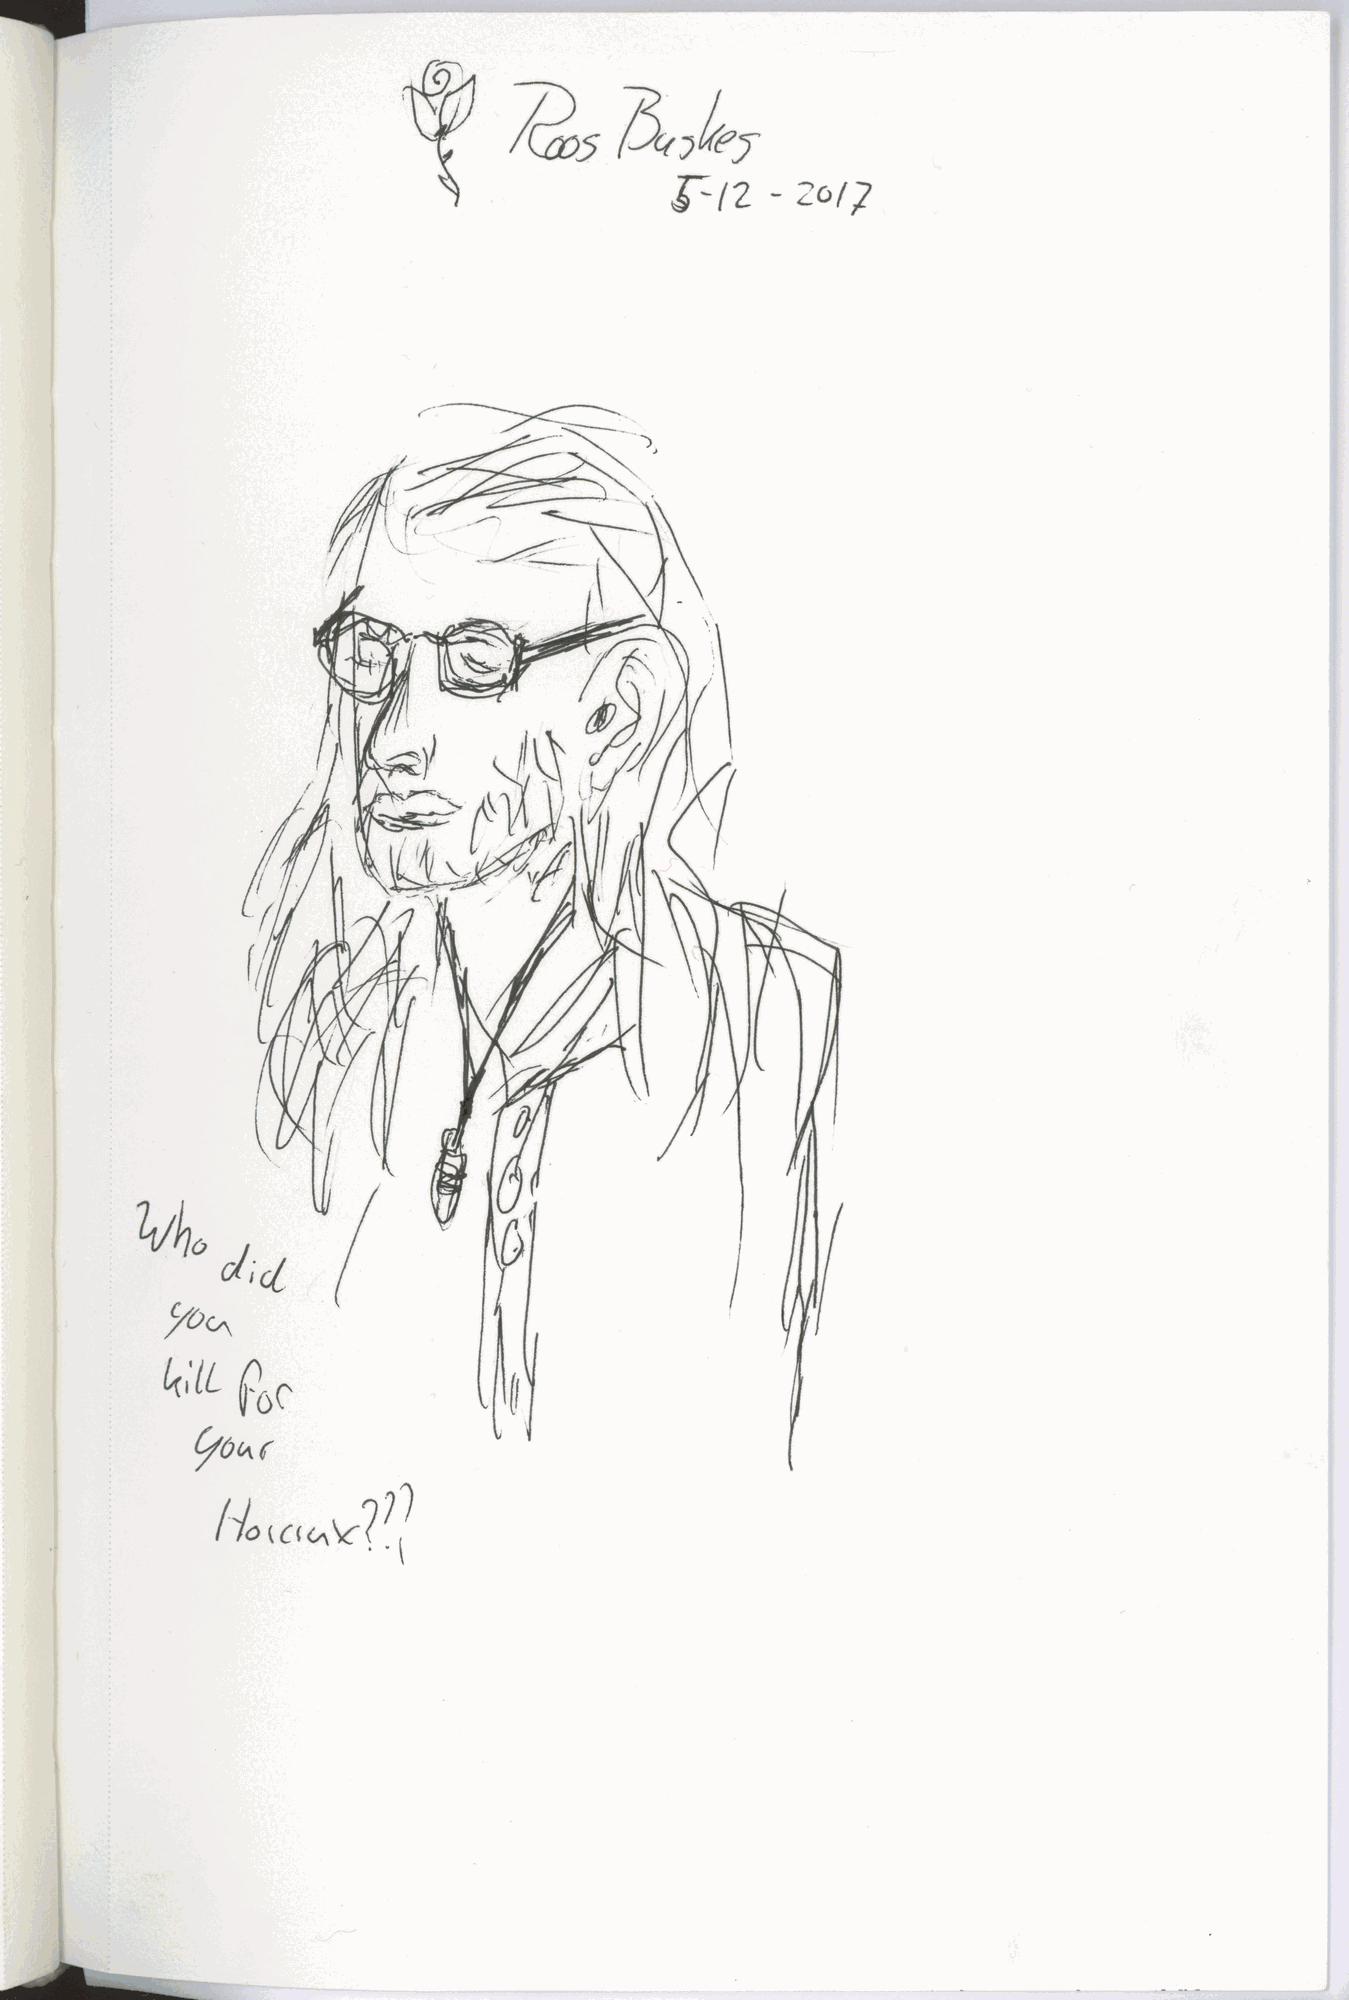 Roos Buskes
5-12-2017
Who did
you
kill for
your
Horcrux???